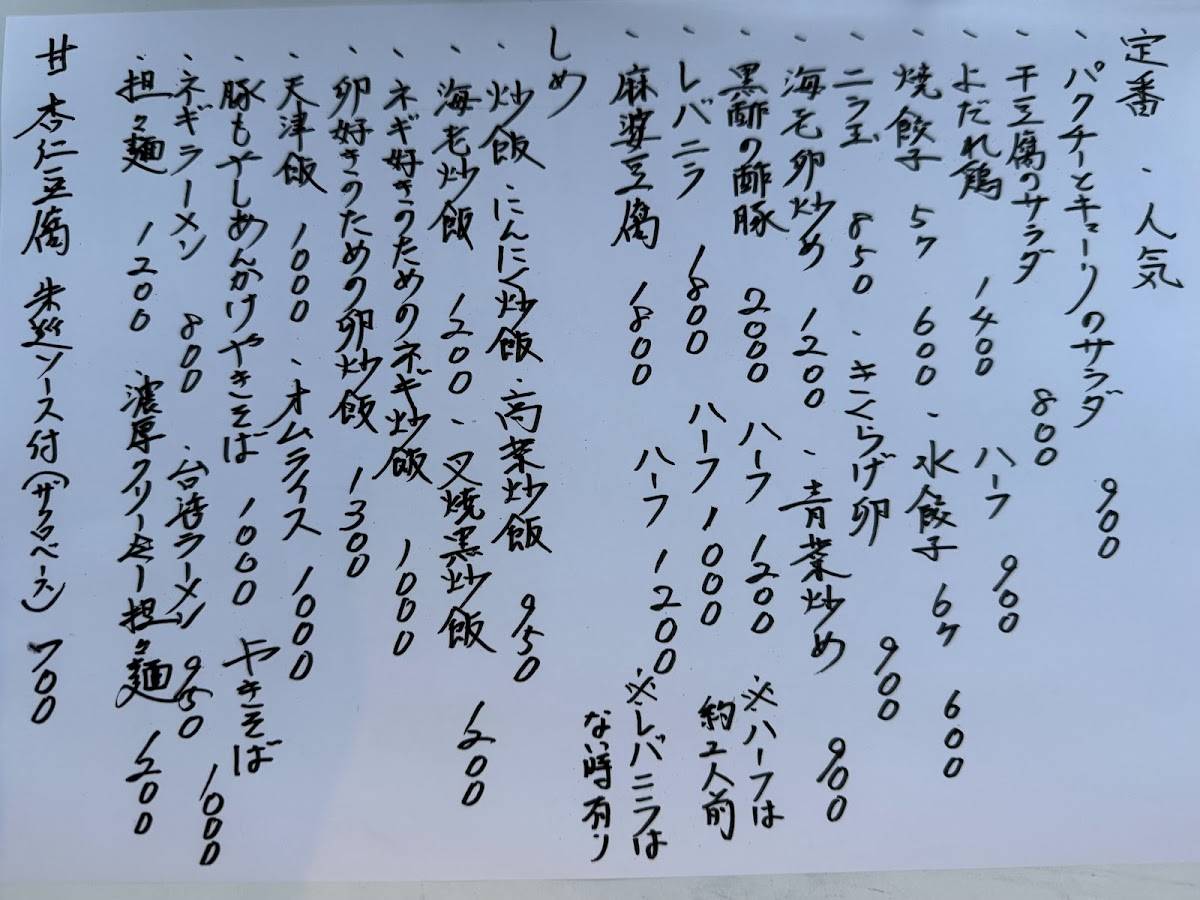 定番・人気
・パクチーとキューリのサラダ 900
・干豆腐のサラダ 800
・よだれ鶏 1400 ハーフ 900
・焼餃子 5ケ 600・水餃子 6ケ 600
・ニラ玉 850・きくらげ卵 900
・海老卵炒め 1200・青菜炒め 900
・黒酢の酢豚 2000 ハーフ 1200 ※ハーフは
・レバニラ 1800 ハーフ 1000 約2人前
・麻婆豆腐 1800 ハーフ 1200 ※レバニラは
ない時有り
しめ
・炒飯・にんにく炒飯・高菜炒飯 950
・海老炒飯 1200・叉焼黒炒飯 1200
・ネギ好きのためのネギ炒飯 1000
・卵好きのための卵炒飯 1300
・天津飯 1000・オムライス 1000
・豚もやしあんかけやきそば 1000 やきそば 1000
・ネギラーメン 800・台湾ラーメン 950
・担々麺 1200・濃厚クリーミー担々麺 1200
甘 杏仁豆腐 ソース付(ザクロベース) 700